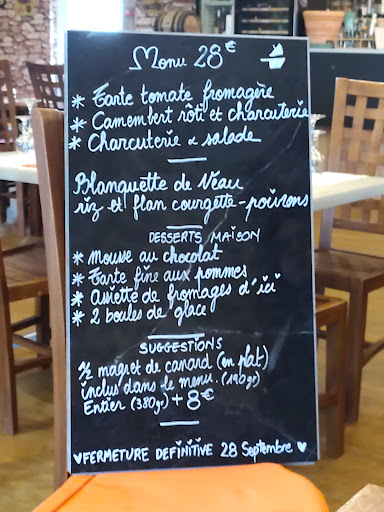 Menu 28€
* Tarte tomate fromagère
* Camembert rôti et charcuterie
* Charcuterie & salade
Blanquette de Veau
riz et flan courgette-poivrons
DESSERTS MAISON
* Mousse au chocolat
* Tarte fine aux pommes
* Assiette de fromages d'ici
* 2 boules de glace
SUGGESTIONS
½ magret de canard (en plat)
inclus dans le menu. (190gr)
Entier (380gr) + 8€
♥FERMETURE DEFINITIVE 28 Septembre ♥